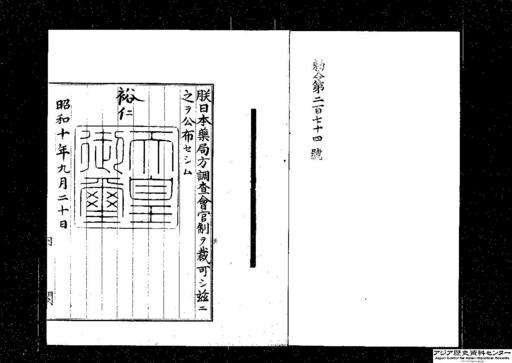 勅令第二百七十四號
朕日本藥局方調査會官制ヲ裁可シ茲ニ
之ヲ公布セシム
裕仁
天皇御璽
昭和十年九月二十日
内閣
アジア歴史資料センター
Japan Center for Asian Historical Records